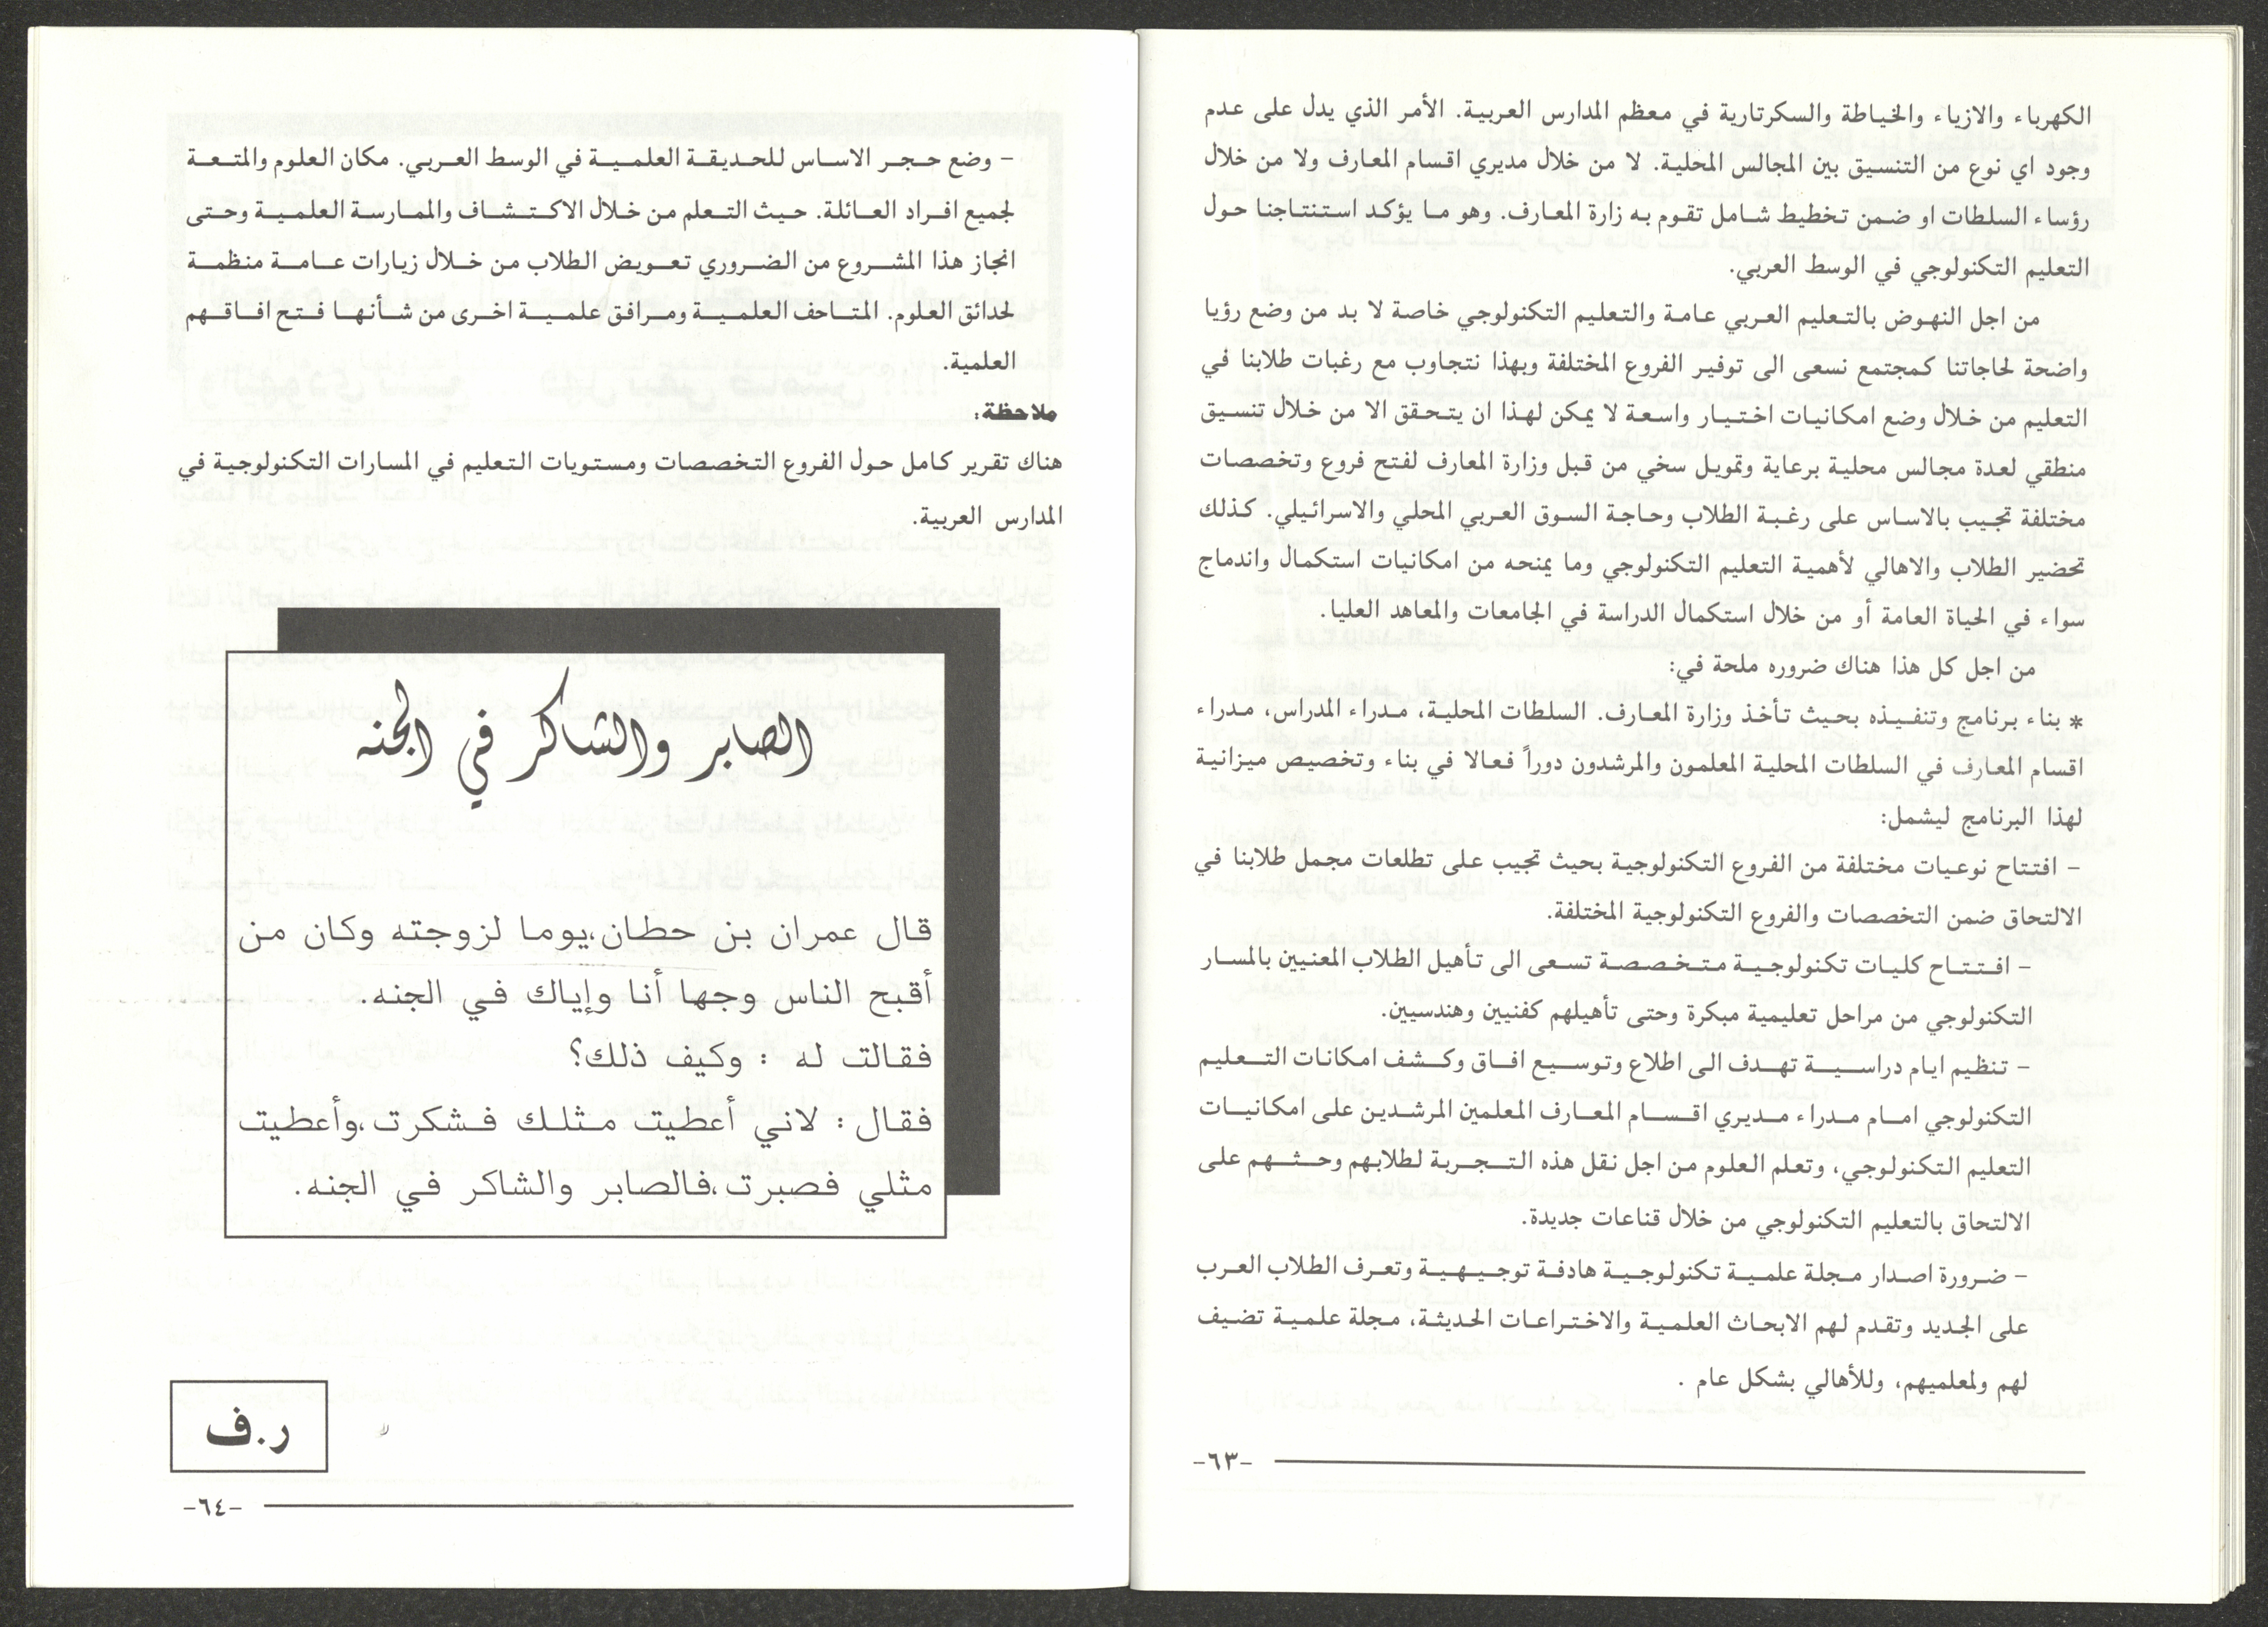 الكهرباء والازياء والخياطة والسكرتارية في معظم المدارس العربية. الأمر الذي يدل على عدم
وجود اي نوع من التنسيق بين المجالس المحلية. لا من خلال مديري اقسام المعارف ولا من خلال
رؤساء السلطات او ضمن تخطيط شامل تقوم به زارة المعارف. وهو ما يؤكد استنتاجنا حول
التعليم التكنولوجي في الوسط العربي.
من اجل النهوض بالتعليم العربي عامة والتعليم التكنولوجي خاصة لا بد من وضع رؤيا
واضحة لحاجاتنا كمجتمع نسعى الى توفير الفروع المختلفة وبهذا نتجاوب مع رغبات طلابنا في
التعليم من خلال وضع امكانيات اختيار واسعة لا يمكن لهذا ان يتحقق الا من خلال تنسيق
منطقي لعدة مجالس محلية برعاية وتمويل سخي من قبل وزارة المعارف لفتح فروع وتخصصات
مختلفة تجيب بالاساس على رغبة الطلاب وحاجة السوق العربي المحلي والاسرائيلي. كذلك
تحضير الطلاب والاهالي لأهمية التعليم التكنولوجي وما يمنحه من امكانيات استكمال واندماج
سواء في الحياة العامة أو من خلال استكمال الدراسة في الجامعات والمعاهد العليا.
من اجل كل هذا هناك ضروره ملحة في:
* بناء برنامج وتنفيذه بحيث تأخذ وزارة المعارف. السلطات المحلية، مدراء المدراس، مدراء
اقسام المعارف في السلطات المحلية المعلمون والمرشدون دوراً فعالا في بناء وتخصيص ميزانية
لهذا البرنامج ليشمل:
- افتتاح نوعيات مختلفة من الفروع التكنولوجية بحيث تجيب على تطلعات مجمل طلابنا في
الالتحاق ضمن التخصصات والفروع التكنولوجية المختلفة.
- افتتاح كليات تكنولوجية متخصصة تسعى الى تأهيل الطلاب المعنيين بالمسار
التكنولوجي من مراحل تعليمية مبكرة وحتى تأهيلهم كفنيين وهندسيين.
- تنظيم ايام دراسية تهدف الى اطلاع وتوسيع افاق وكشف امكانات التعليم
التكنولوجي امام مدراء مديري اقسام المعارف المعلمين المرشدين على امكانيات
التعليم التكنولوجي، وتعلم العلوم من اجل نقل هذه التجربة لطلابهم وحثهم على
الالتحاق بالتعليم التكنولوجي من خلال قناعات جديدة.
- ضرورة اصدار مجلة علمية تكنولوجية هادفة توجيهية وتعرف الطلاب العرب
على الجديد وتقدم لهم الابحاث العلمية والاختراعات الحديثة، مجلة علمية تضيف
لهم ولمعلميهم، وللأهالي بشكل عام .
-٦٣-
- وضع حجر الاساس للحديقة العلمية في الوسط العربي. مكان العلوم والمتعة
لجميع افراد العائلة. حيث التعلم من خلال الاكتشاف والممارسة العلمية وحتى
انجاز هذا المشروع من الضروري تعويض الطلاب من خلال زيارات عامة منظمة
لحدائق العلوم. المتاحف العلمية ومرافق علمية اخرى من شأنها فتح افاقهم
العلمية.
ملاحظة:
هناك تقرير كامل حول الفروع التخصصات ومستويات التعليم في المسارات التكنولوجية في
المدارس العربية.
الصابر والشاكر في الجنه
قال عمران بن حطان،يوما لزوجته وكان من
أقبح الناس وجها أنا وإياك في الجنه.
فقالت له : وكيف ذلك؟
فقال : لاني أعطيت مثلك فشكرت،وأعطيت
مثلي فصبرت،فالصابر والشاكر في الجنه.
ر.ف
-٦٤-